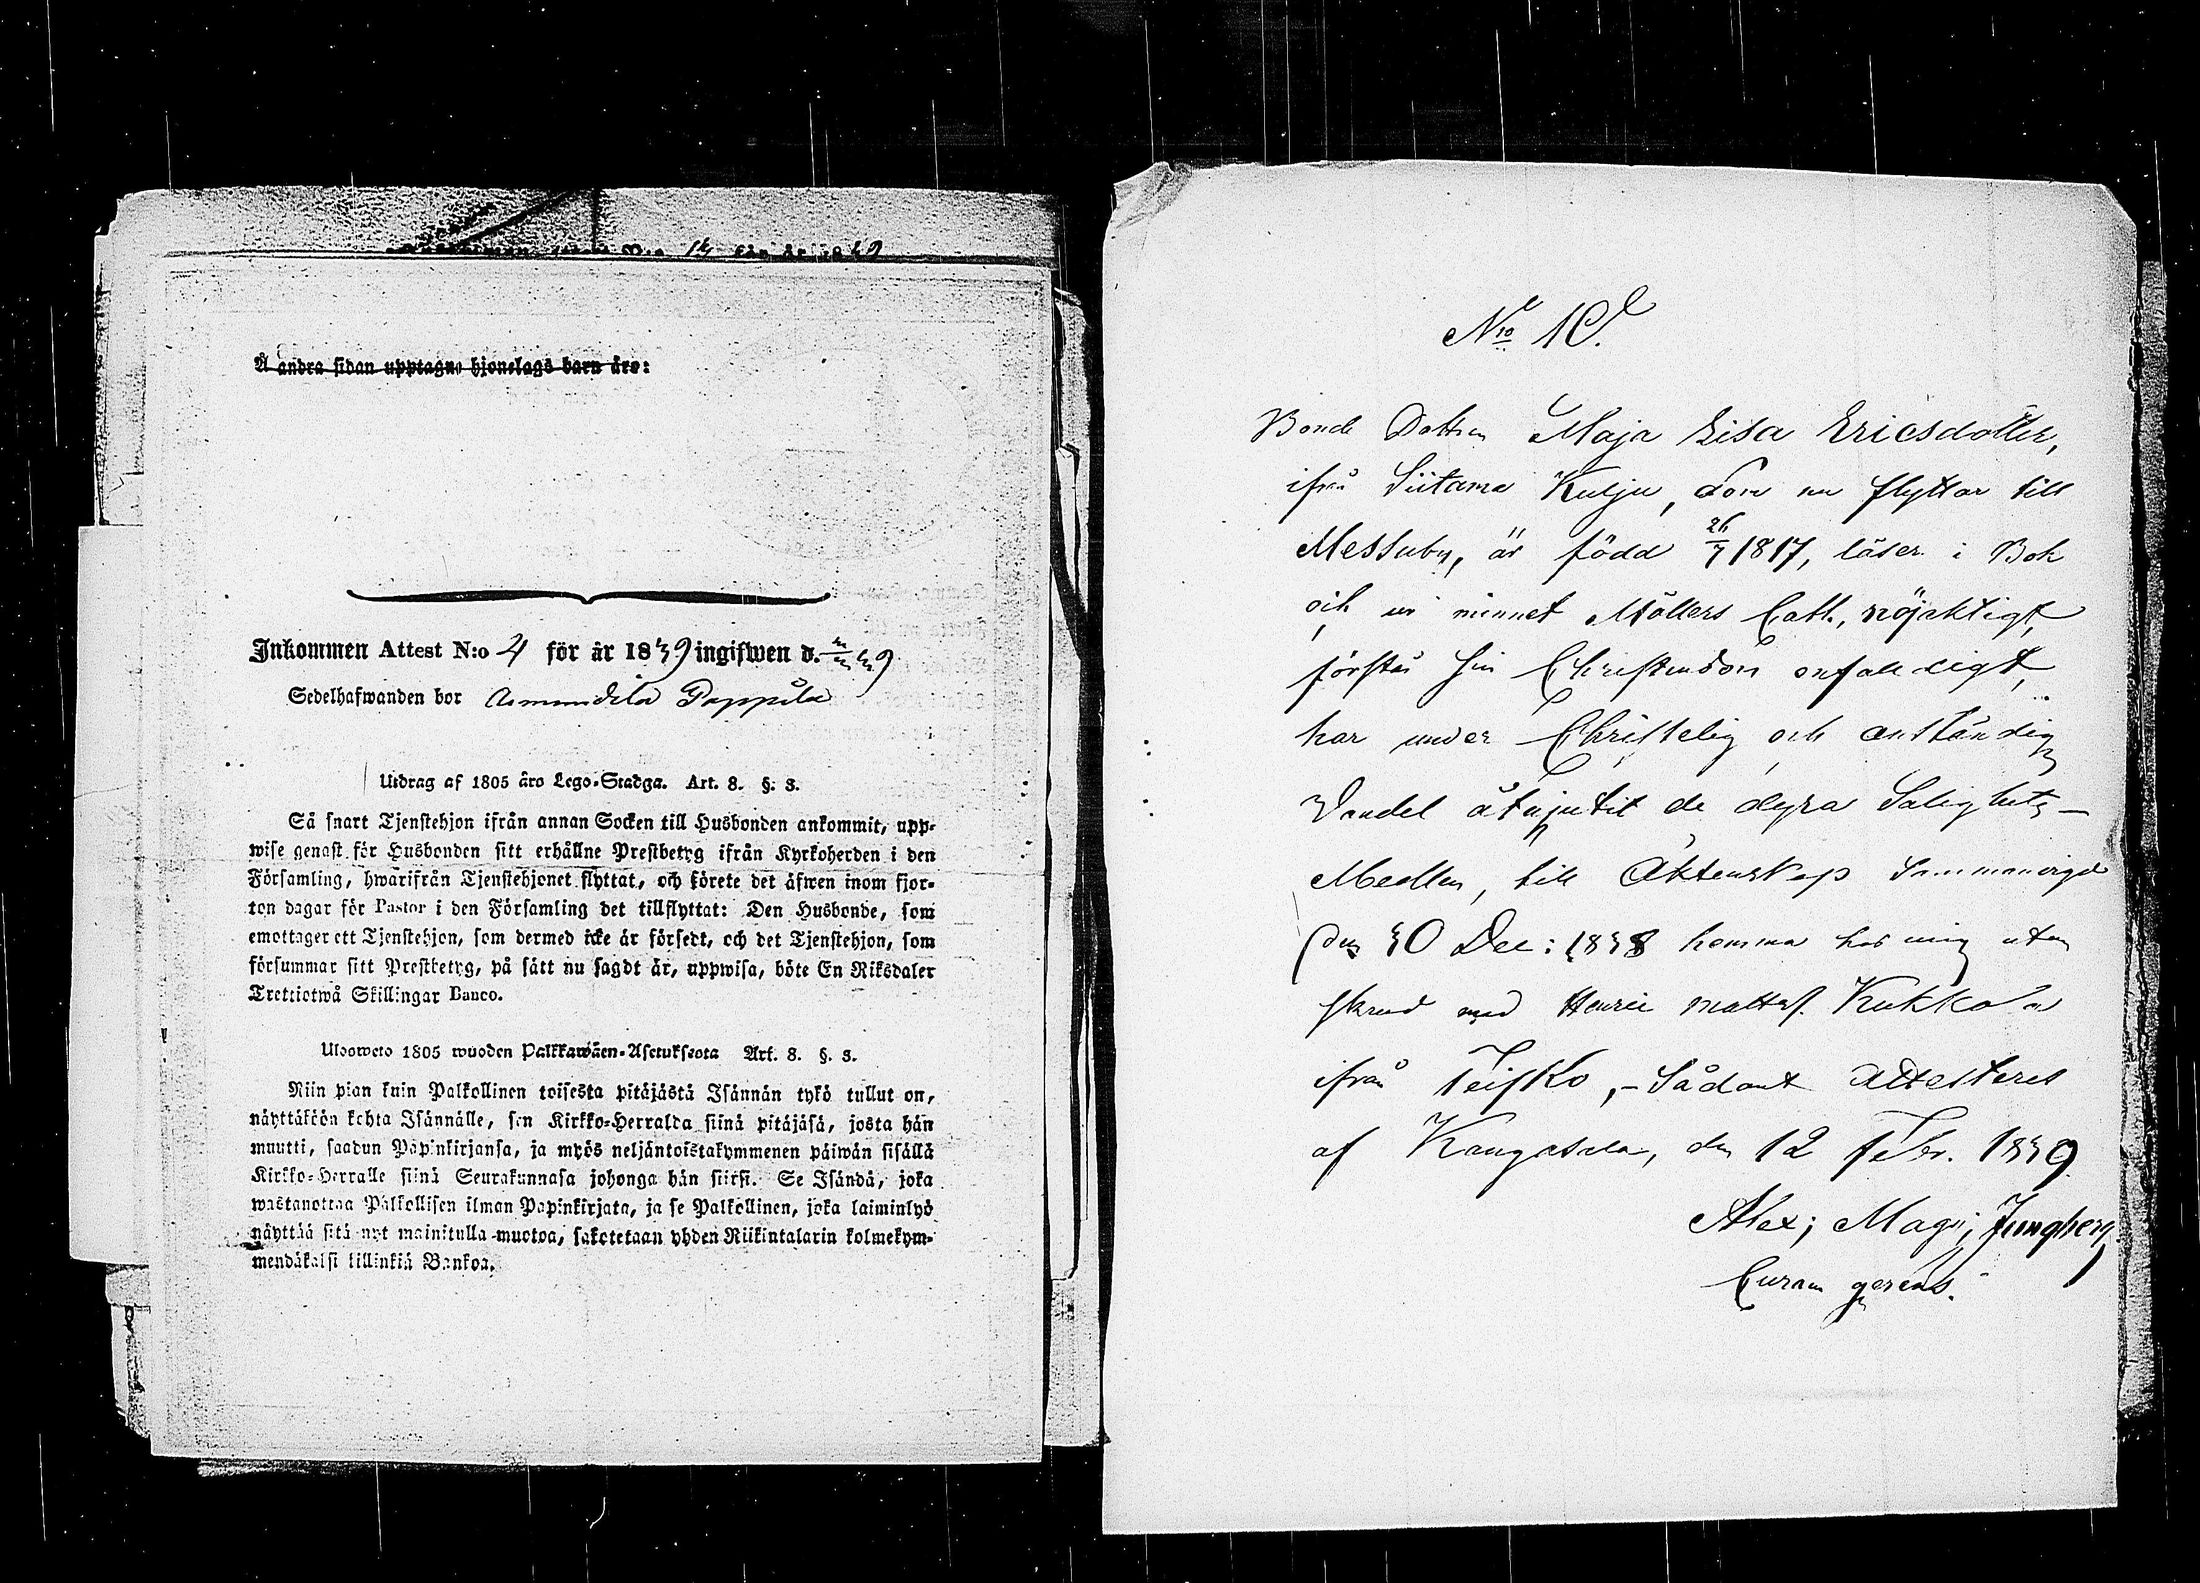 N:o 14 för år 1839
Å andra sidan upptagne hjonelags barn äro:
Inkommen Attest N:o 4 för år 1839 ingifwen d.
Sedelhafwanden bor Pappila
Utdrag af 1805 års Lego-Stadga. Art. 8. §. 3.
Så snart Tjenstehjon ifrån annan Socken till Husbonden ankommit, upp-
wise genast för Husbonden sitt erhållne Prestbetyg ifrån Kyrkoherden i den
Församling, hwarifrån Tjenstehjonet flyttat, och förete det äfwen inom fjor-
ton dagar för Pastor i den Församling det tillflyttat: Den Husbonde, som
emottager ett Tjenstehjon, som dermed icke är försedt, och det Tjenstehjon, som
försummar sitt Prestbetyg, på sätt nu sagdt är, uppwisa, böte En Riksdaler
Trettiotwå Skillingar Banco.
Ulosweto 1805 wuoden Palkkawäen-Asetuksesta Art. 8. §. 3.
Niin pian kuin Palkollinen toisesta pitäjästä Isännän tykö tullut on,
näyttäköön kohta Isännälle, sen Kirkko-Herralda siinä pitäjäsä, josta hän
muutti, saadun Papinkirjansa, ja myös neljäntoistakymmenen päiwän sisällä
Kirkko-Herralle siinä Seurakunnasa johonga hän siirsi. Se Isändä, joka
wastanottaa Palkollisen ilman Papinkirjata, ja se Palkollinen, joka laiminlyö
näyttää sitä nyt mainitulla muotoa, sakotetaan yhden Riikintalarin kolmekym-
mendäkaksi killinkiä Bankoa.
N:ro 10.
Bonde Dottren Maja Lisa Ericsdotter,
ifrån Siitama Kulju, som nu flyttar till
Messuby, är född 26/7 1817, läser i Bok
och ur minnet Möllers Cath. nöjaktigt,
förstår sin Christendom enfalldigt,
har under Christelig och anständig
Vandel åtnjutit de dyra Salighets-
Medlen, till Äktenskap Sammanvigd
den 30 Dec: 1838 hemma hos mig utan
skrud med Henric Mattss. Kukkola
ifrån Teisko, - Sådant attesteras
af Kangasala, den 12 Febr. 1839.
Alex; Magn; Jungberg
Curam gerens.